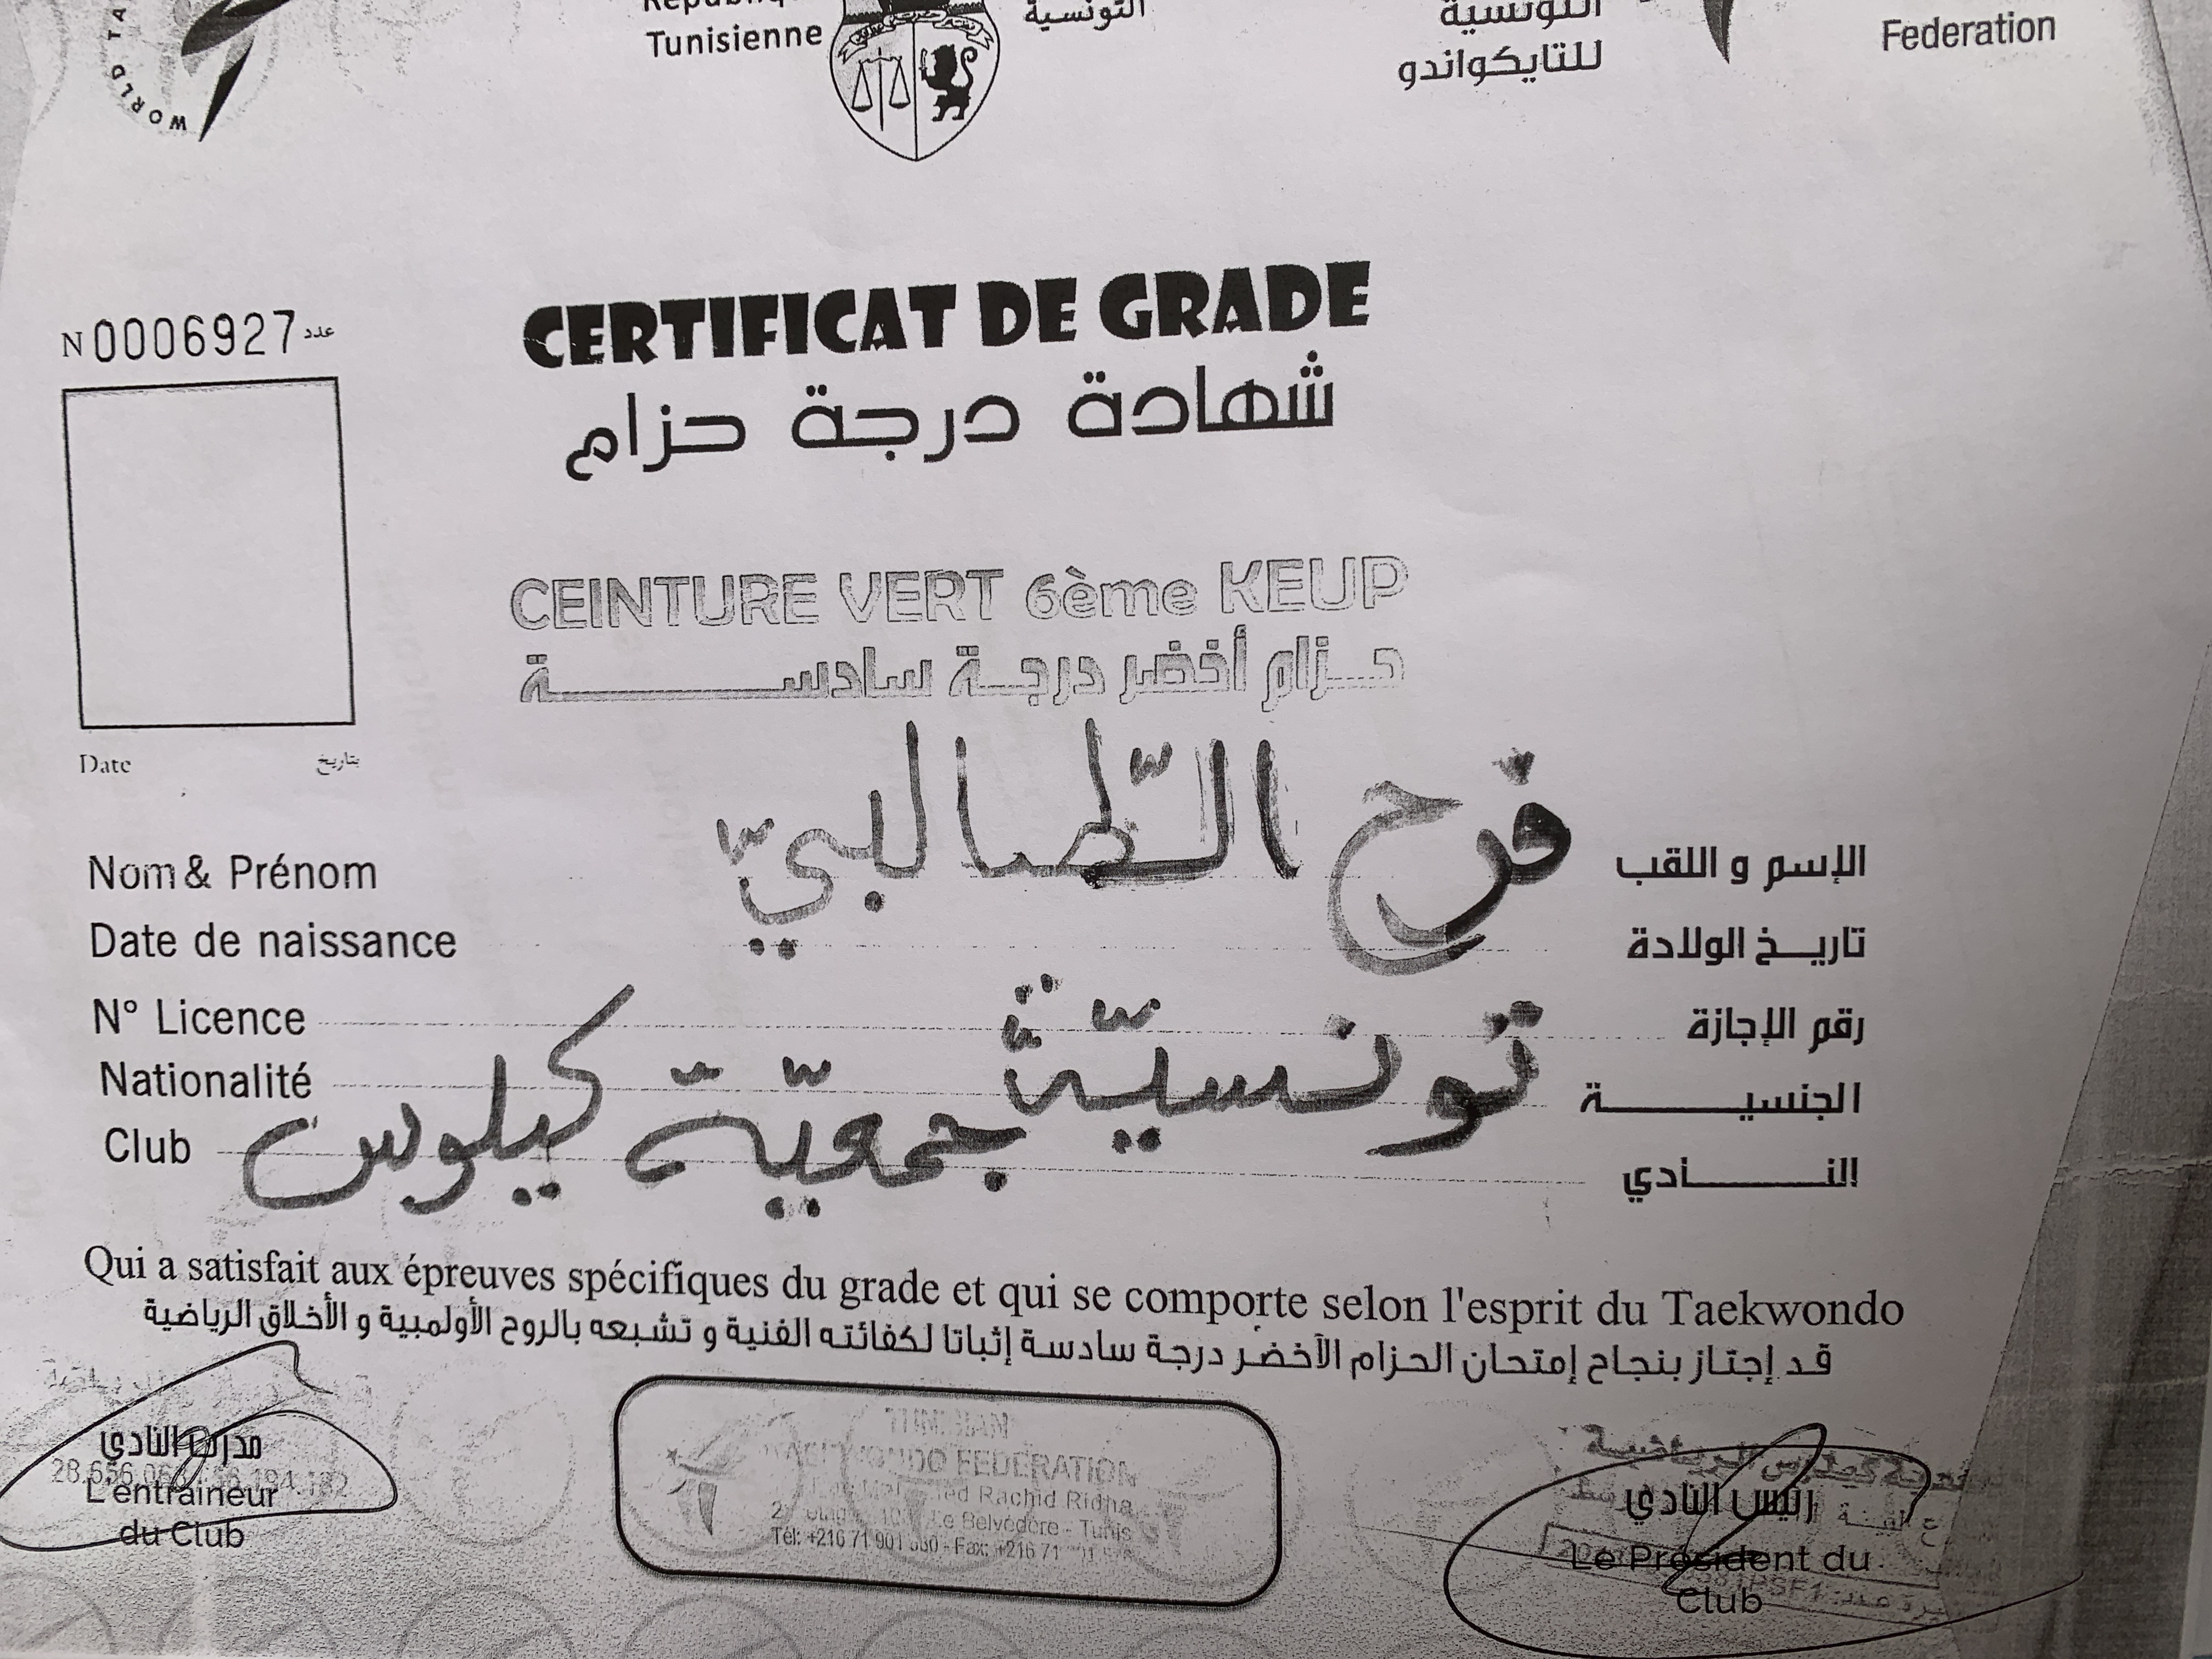 WORLD TA
République
Tunisienne
التونسية
التونسية
للتايكواندو
Federation
N 0006927 عدد
CERTIFICAT DE GRADE
شهادة درجة حزام
CEINTURE VERT 6ème KEUP
حزام أخضر درجة سادسة
Date بتاريخ
Nom & Prénom فرح الطّالبيّ الإسم و اللقب
Date de naissance تاريخ الولادة
N° Licence رقم الإجازة
Nationalité تونسيّة الجنسية
Club جمعيّة كيلوس النادي
Qui a satisfait aux épreuves spécifiques du grade et qui se comporte selon l'esprit du Taekwondo
قد إجتاز بنجاح إمتحان الحزام الأخضر درجة سادسة إثباتا لكفائته الفنية و تشبعه بالروح الأولمبية و الأخلاق الرياضية
مدرب النادي
L'entraineur
du Club
TUNISIAN
TAEKWONDO FEDERATION
Rachid Ridha
Le Belvédère - Tunis
Tél: +216 71 901 - Fax: +216 71
رئيس النادي
Le Président du
Club